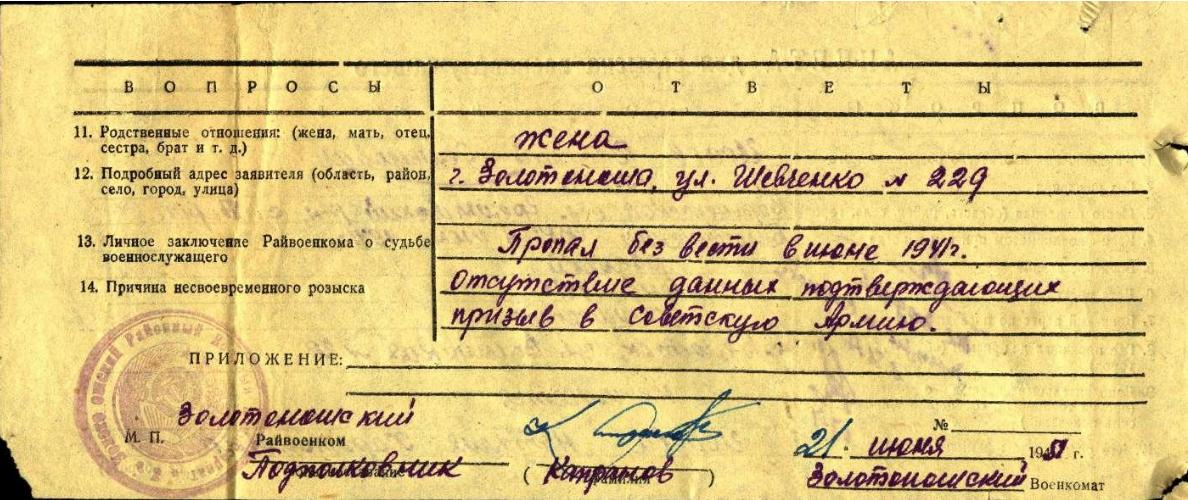 ВОПРОСЫ ОТВЕТЫ
11. Родственные отношения: (жена, мать, отец, сестра, брат и т. д.) жена
12. Подробный адрес заявителя (область, район, село, город, улица) г. Золотоноша, ул. Шевченко № 229
13. Личное заключение Райвоенкома о судьбе военнослужащего Пропал без вести в июне 1941г.
14. Причина несвоевременного розыска Отсутствие данных подтверждающих
призыв в Советскую Армию.
ПРИЛОЖЕНИЕ:
Золотоношский
М. П. Райвоенком
№
21 июня 1951 г.
Подполковник (Капранов) Золотоношский Военкомат